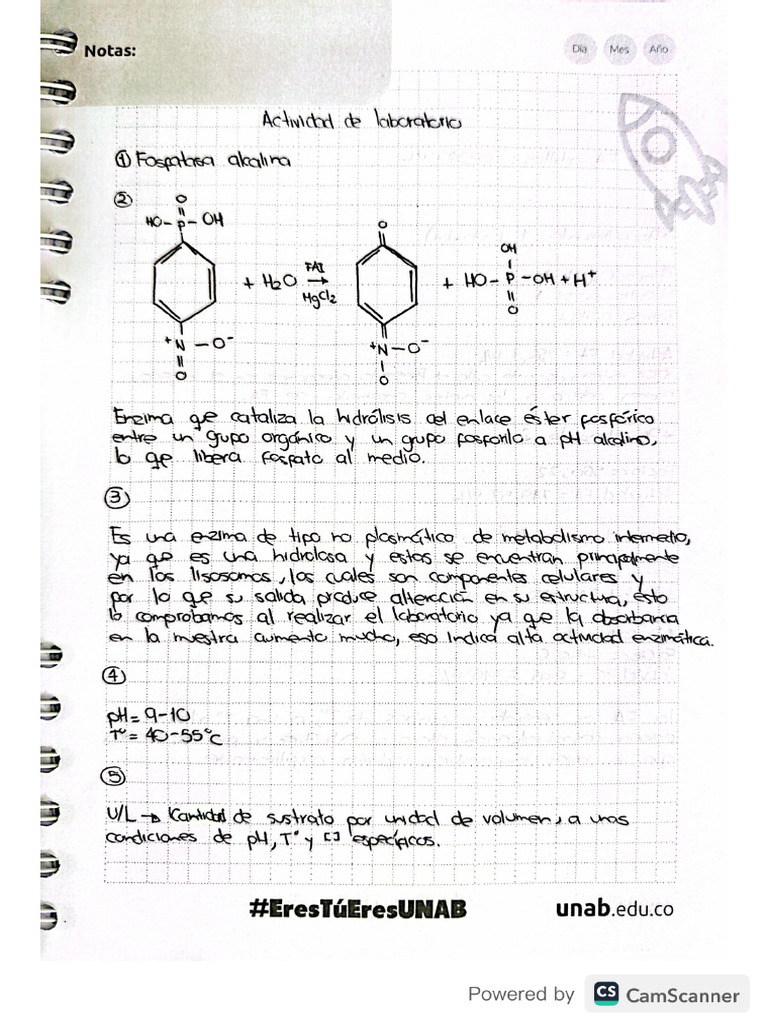 Notas:
Día Mes Año
Actividad de laboratorio
① Fosfatasa alcalina
②
O
HO-P-OH
+N-O-
O
+ H2O
FAI
→
MgCl2
O
+N-O-
O
+ HO-P-OH + H+
OH
O
Enzima qe cataliza la hidrólisis del enlace éster fosfórico
entre un grupo orgánico y un grupo fosforilo a pH alcalino,
lo qe libera fosfato al medio.
③
Es una enzima de tipo no plasmático de metabolismo intermedio,
ya qe es una hidrolasa y estas se encuentran principalmente
en los lisosomas, los cuales son componentes celulares y
por lo qe su salida produce alteración en su estructura, esto
lo comprobamos al realizar el laboratorio ya qe la absorbancia
en la muestra aumento mucho, eso indica alta actividad enzimática.
④
pH = 9-10
T° = 40-55°C
⑤
U/L → Cantidad de sustrato por unidad de volumen, a unas
condiciones de pH, T° y [] específicos.
#EresTúEresUNAB
unab.edu.co
Powered by CS CamScanner